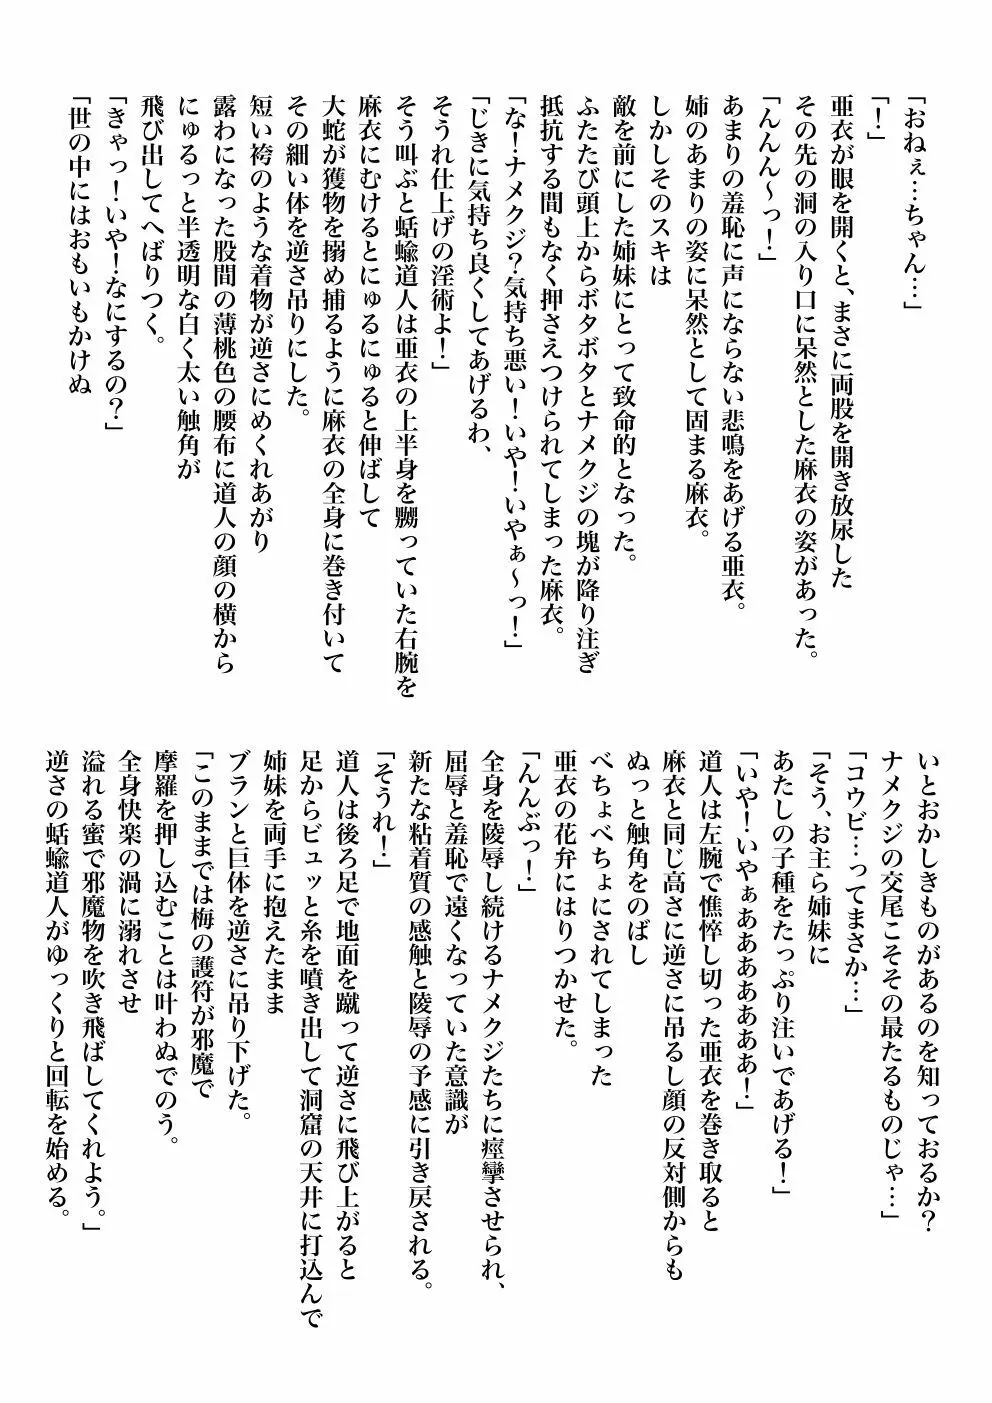 「おねぇ…ちゃん…」
「！」
亜衣が眼を開くと、まさに両股を開き放尿した
その先の洞の入り口に呆然とした麻衣の姿があった。
「んんん～っ！」
あまりの羞恥に声にならない悲鳴をあげる亜衣。
姉のあまりの姿に呆然として固まる麻衣。
しかしそのスキは
敵を前にした姉妹にとって致命的となった。
ふたたび頭上からボタボタとナメクジの塊が降り注ぎ
抵抗する間もなく押さえつけられてしまった麻衣。
「な！ナメクジ？気持ち悪い！いや！いやぁ～っ！」
「じきに気持ち良くしてあげるわ、
そうれ仕上げの淫術よ！」
そう叫ぶと蛞蝓道人は亜衣の上半身を嬲っていた右腕を
麻衣にむけるとにゅるにゅると伸ばして
大蛇が獲物を搦め捕るように麻衣の全身に巻き付いて
その細い体を逆さ吊りにした。
短い袴のような着物が逆さにめくれあがり
露わになった股間の薄桃色の腰布に道人の顔の横から
にゅるっと半透明な白く太い触角が
飛び出してへばりつく。
「きゃっ！いや！なにするの？」
「世の中にはおもいもかけぬ
いとおかしきものがあるのを知っておるか？
ナメクジの交尾こそその最たるものじゃ…」
「コウビ…ってまさか…」
「そう、お主ら姉妹に
あたしの子種をたっぷり注いであげる！」
「いや！いやぁああああああ！」
道人は左腕で憔悴し切った亜衣を巻き取ると
麻衣と同じ高さに逆さに吊るし顔の反対側からも
ぬっと触角をのばし
べちょべちょにされてしまった
亜衣の花弁にはりつかせた。
「んんぶっ！」
全身を陵辱し続けるナメクジたちに痙攣させられ、
屈辱と羞恥で遠くなっていた意識が
新たな粘着質の感触と陵辱の予感に引き戻される。
「そうれ！」
道人は後ろ足で地面を蹴って逆さに飛び上がると
足からビュッと糸を噴き出して洞窟の天井に打込んで
姉妹を両手に抱えたまま
ブランと巨体を逆さに吊り下げた。
「このままでは梅の護符が邪魔で
摩羅を押し込むことは叶わぬでのう。
全身快楽の渦に溺れさせ
溢れる蜜で邪魔物を吹き飛ばしてくれよう。」
逆さの蛞蝓道人がゆっくりと回転を始める。